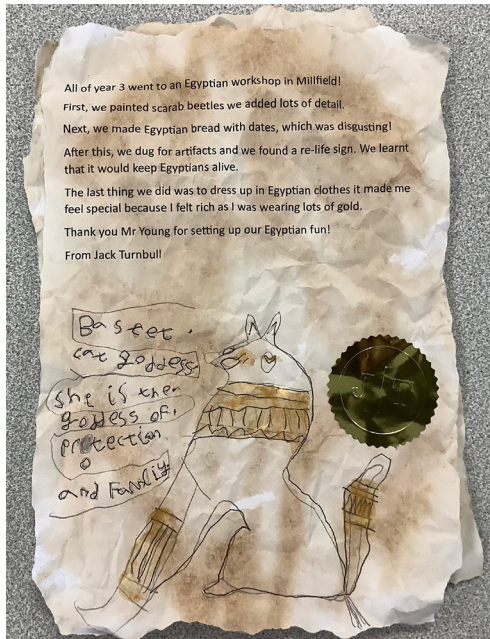 All of year 3 went to an Egyptian workshop in Millfield!
First, we painted scarab beetles we added lots of detail.
Next, we made Egyptian bread with dates, which was disgusting!
After this, we dug for artifacts and we found a re-life sign. We learnt
that it would keep Egyptians alive.
The last thing we did was to dress up in Egyptian clothes it made me
feel special because I felt rich as I was wearing lots of gold.
Thank you Mr Young for setting up our Egyptian fun!
From Jack Turnbull
Bastet.
cat goddess
she is the
goddess of
protection
and Family